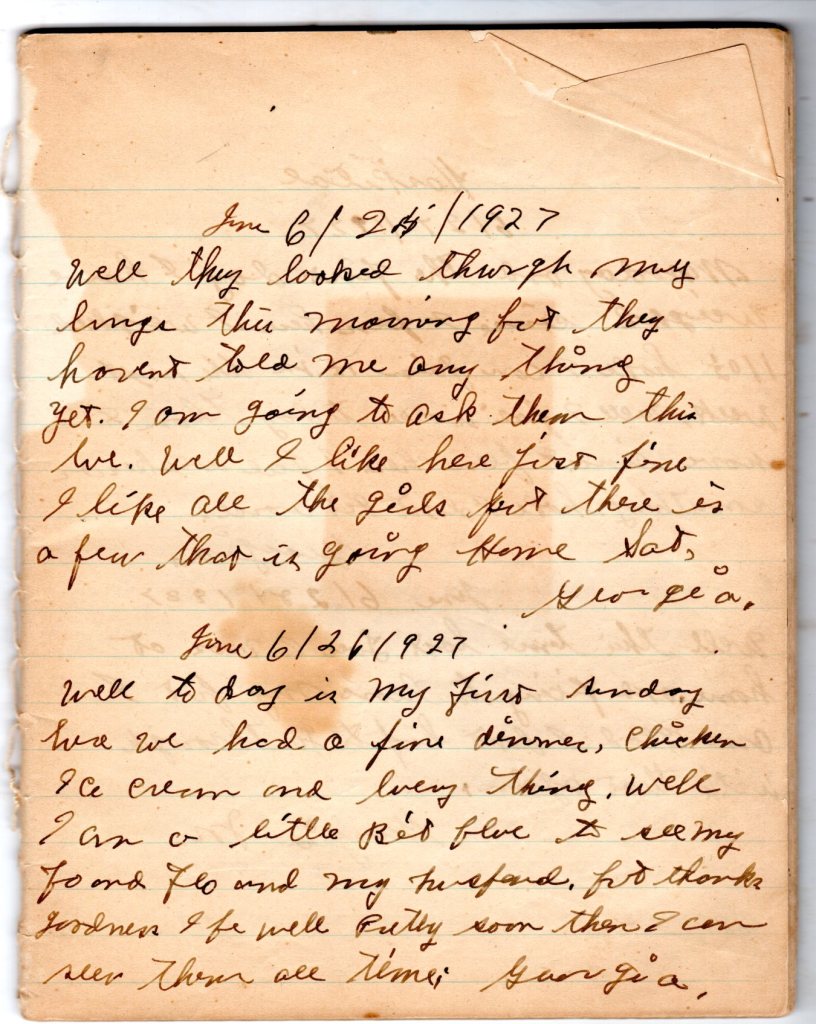 June 6/24/1927
Well they looked thwrgh my
lungs this morning but they
havent told me any thing
yet. I am going to ask them this
Eve. Well I like here just fine
I like all the girls but there is
a few that is going Home Sat.
Georgia.
June 6/26/1927
Well to day is my first sunday
we had a fine dinner, Chicken
Ice cream and Every thing. Well
I am a little Bit blue to see my
and Flo and my husband. but thanks
goodness I be well Pretty soon then I can
see them all time. Georgia.